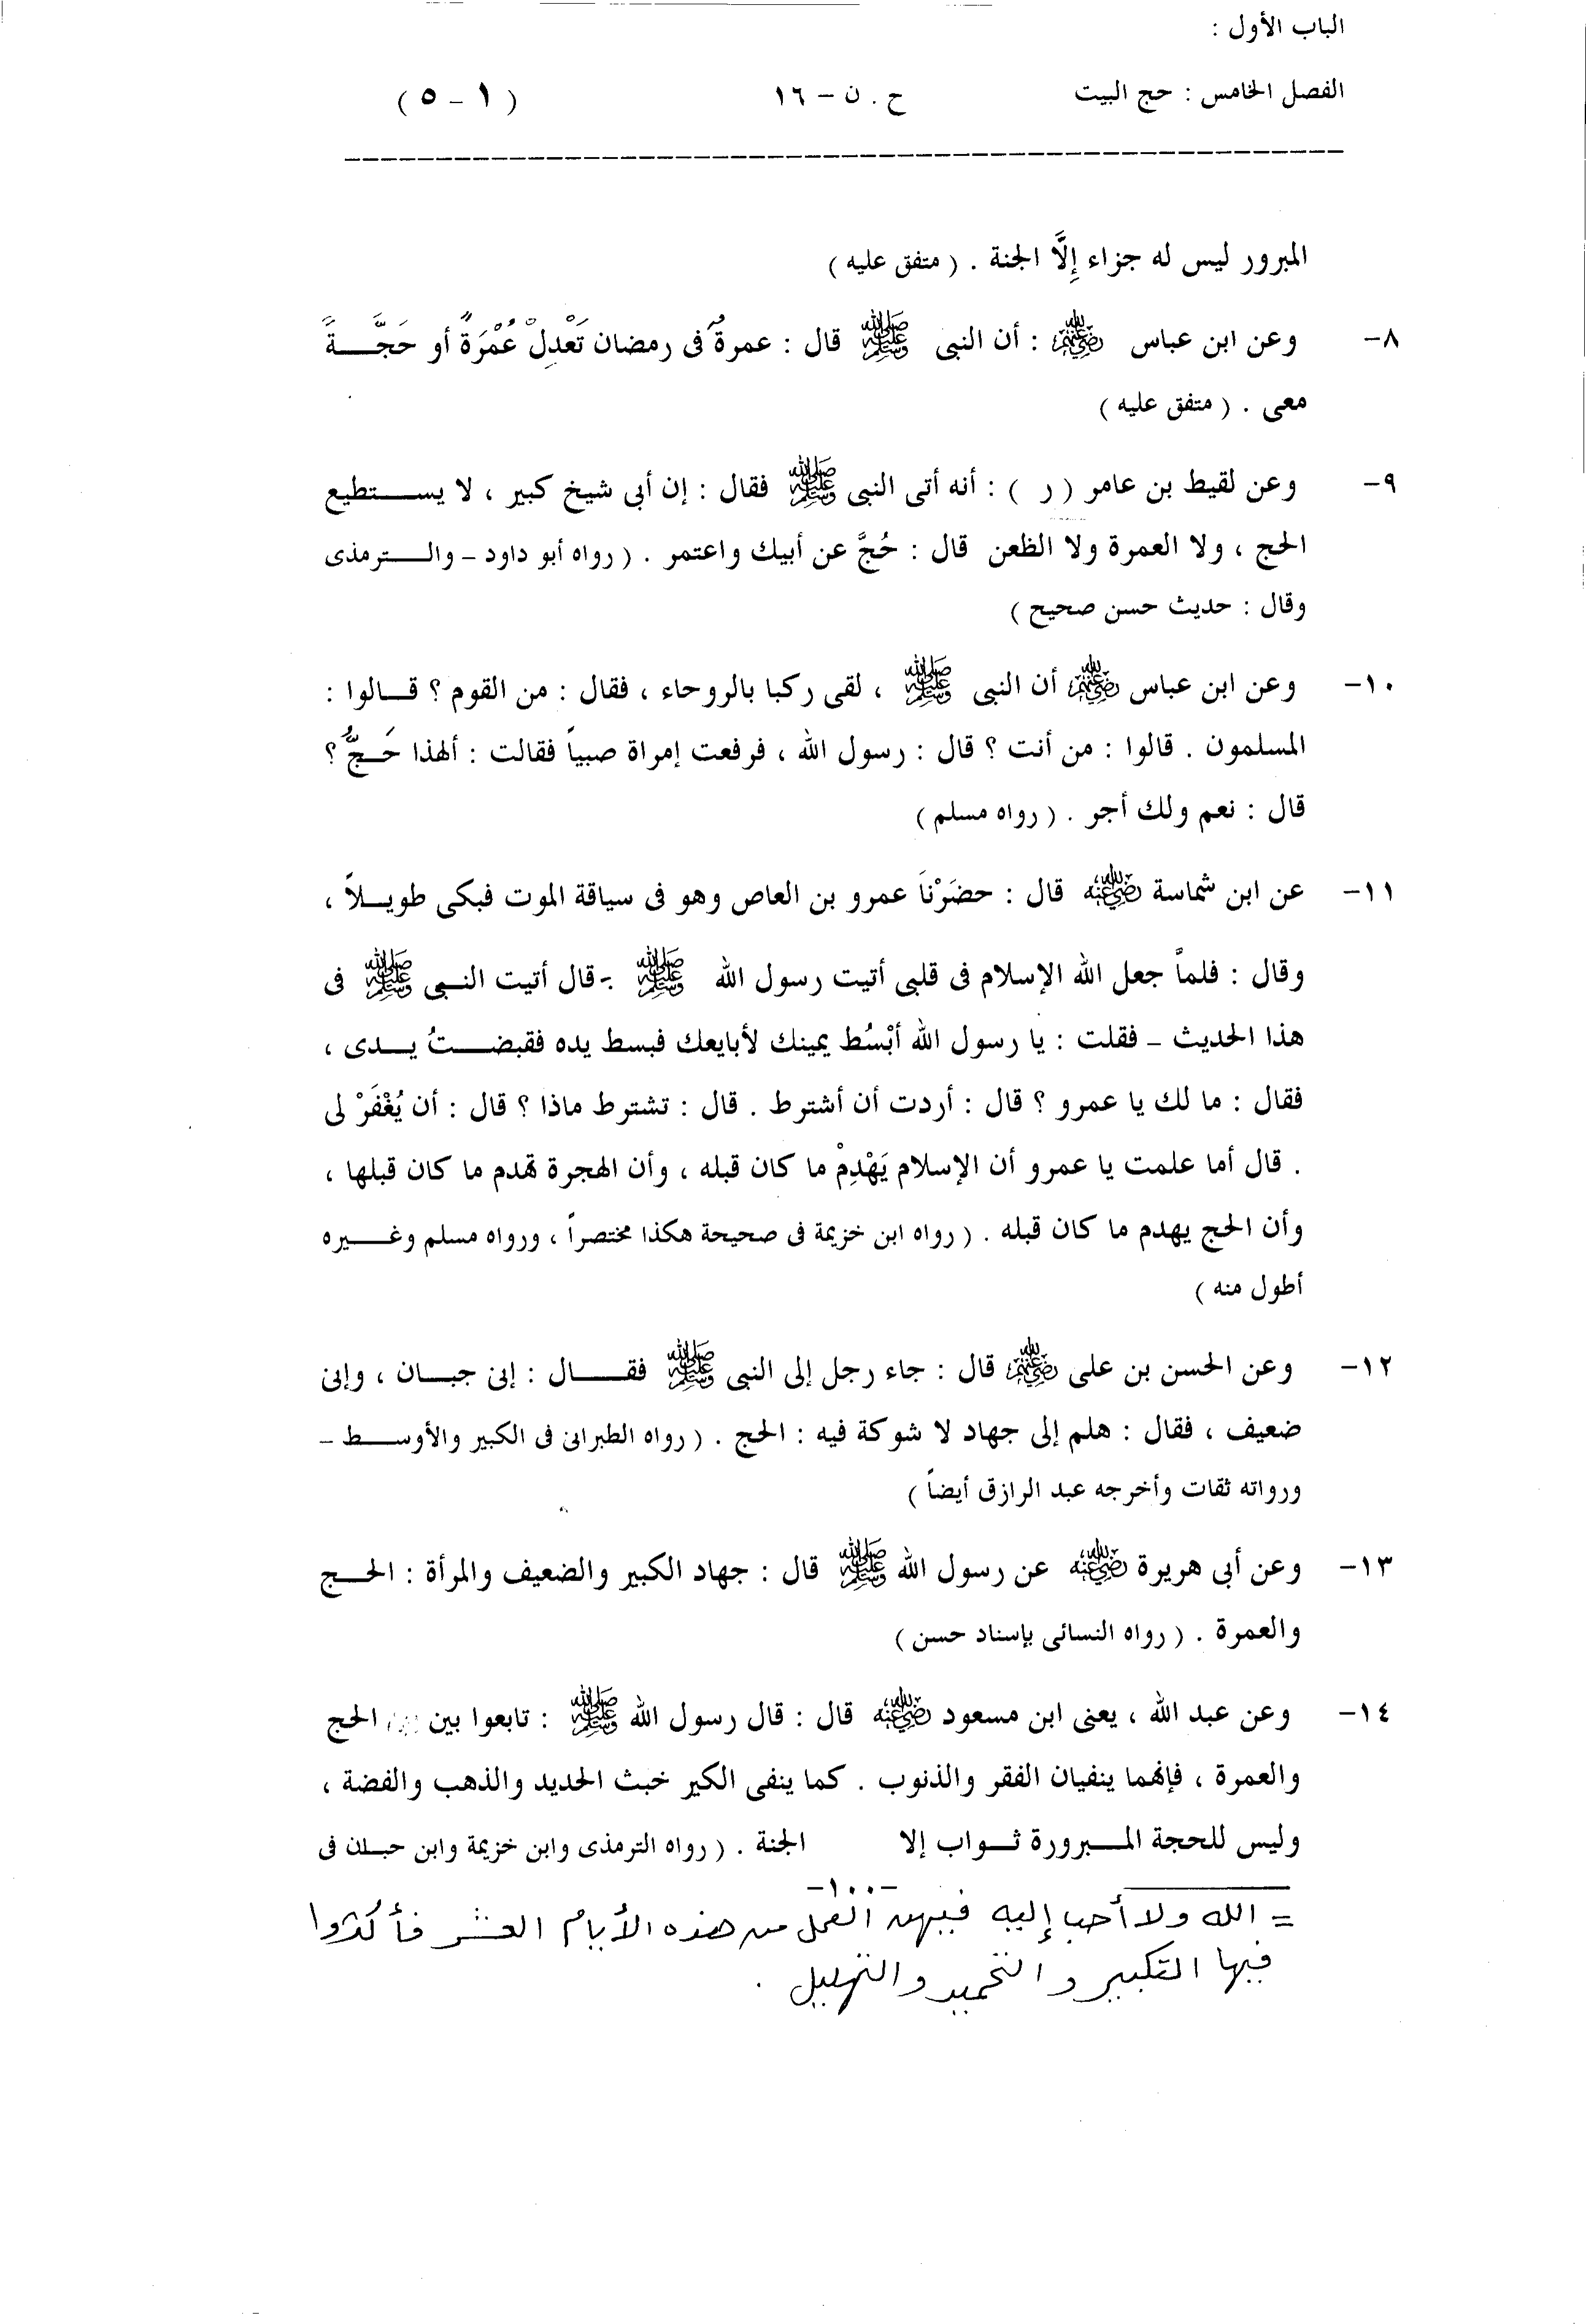 الباب الأول :
الفصل الخامس : حج البيت ح . ن – ١٦ ( ١ – ٥ )
المبرور ليس له جزاء إِلَّا الجنة . ( متفق عليه )
٨– وعن ابن عباس رضي الله عنهم : أن النبى ﷺ قال : عمرةٌ فى رمضان تَعْدِلْ عُمْرَةً أو حَجَّــةً
معى . ( متفق عليه )
٩– وعن لقيط بن عامر ( ر ) : أنه أتى النبى ﷺ فقال : إن أبى شيخ كبير ، لا يســتطيع
الحج ، ولا العمرة ولا الظعن قال : حُجَّ عن أبيك واعتمر . ( رواه أبو داود – والــترمذى
وقال : حديث حسن صحيح )
١٠– وعن ابن عباس رضي الله عنهم أن النبى ﷺ ، لقى ركبا بالروحاء ، فقال : من القوم ؟ قــالوا :
المسلمون . قالوا : من أنت ؟ قال : رسول الله ، فرفعت إمراة صبياً فقالت : ألهذا حَــجٌّ ؟
قال : نعم ولك أجر . ( رواه مسلم )
١١– عن ابن شماسة رضي الله عنه قال : حضَرْنَا عمرو بن العاص وهو فى سياقة الموت فبكى طويــلاً ،
وقال : فلماَّ جعل الله الإسلام فى قلبى أتيت رسول الله ﷺ – قال أتيت النــبى ﷺ فى
هذا الحديث – فقلت : يا رسول الله أبْسُط يمينك لأبايعك فبسط يده فقبضــتُ يــدى ،
فقال : ما لك يا عمرو ؟ قال : أردت أن أشترط . قال : تشترط ماذا ؟ قال : أن يُغْفَرْ لى
. قال أما علمت يا عمرو أن الإسلام يَهْدِمْ ما كان قبله ، وأن الهجرة تهدم ما كان قبلها ،
وأن الحج يهدم ما كان قبله . ( رواه ابن خزيمة فى صحيحة هكذا مختصراً ، ورواه مسلم وغــيره
أطول منه )
١٢– وعن الحسن بن على رضي الله عنهم قال : جاء رجل إلى النبى ﷺ فقــال : إنى جبــان ، وإنى
ضعيف ، فقال : هلم إلى جهاد لا شوكة فيه : الحج . ( رواه الطبرانى فى الكبير والأوســط –
ورواته ثقات وأخرجه عبد الرازق أيضاً )
١٣– وعن أبى هريرة رضي الله عنه عن رسول الله ﷺ قال : جهاد الكبير والضعيف والمرأة : الحــج
والعمرة . ( رواه النسائى بإسناد حسن )
١٤– وعن عبد الله ، يعنى ابن مسعود رضي الله عنه قال : قال رسول الله ﷺ : تابعوا بين الحج
والعمرة ، فإنهما ينفيان الفقر والذنوب . كما ينفى الكير خبث الحديد والذهب والفضة ،
وليس للحجة المــبرورة ثــواب إلا الجنة . ( رواه الترمذى وابن خزيمة وابن حبــان فى
–١٠٠–
= الله ولا أحب إليه فيهن العمل من هذه الأيام العشر فأكثروا
فيها التكبير والتحميد والتهليل .